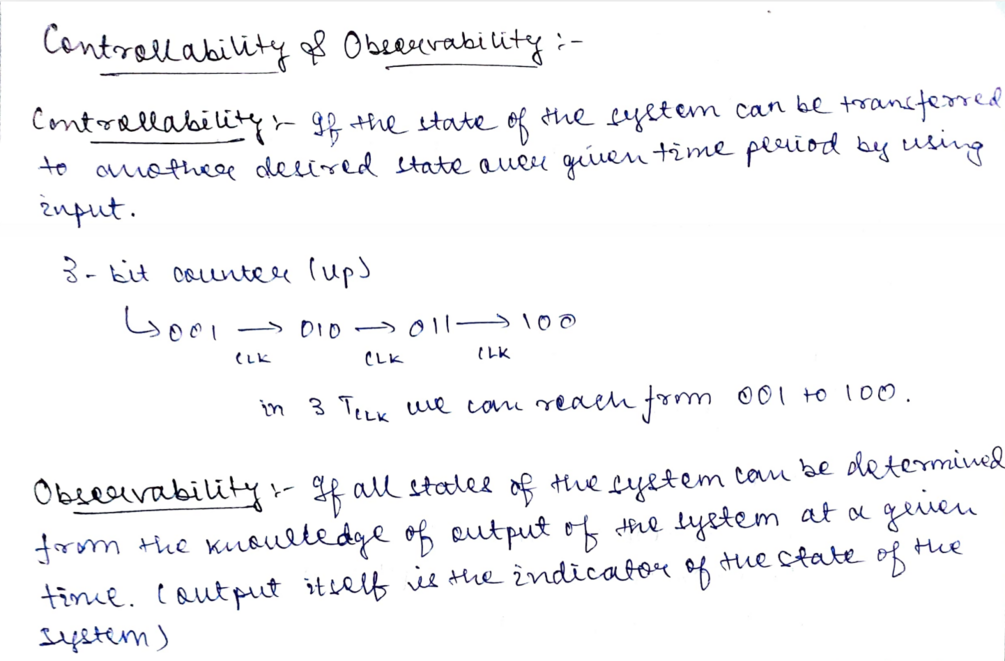 Controllability & Observability :-
Controllability :- If the state of the system can be transferred
to another desired state over given time period by using
input.
3-bit counter (up)
↳ 001 → 010 → 011 → 100
CLK CLK CLK
in 3 TCLK we can reach from 001 to 100.
Observability :- If all states of the system can be determined
from the knowledge of output of the system at a given
time. (output itself is the indicator of the state of the
system)